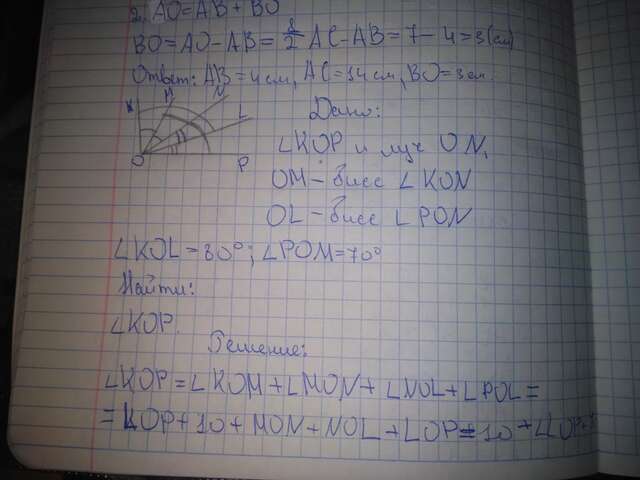 2. AO = AB + BO
BO = AO - AB = AC - AB = 7 - 4 = 3 (см)
Ответ: AB = 4 см, AC = 14 см, BO = 3 см.
K M N L O P
Дано:
∠KOP и луч ON,
OM - бисс ∠KON
OL - бисс ∠PON
∠KOL = 80°; ∠POM = 70°
Найти:
∠KOP.
Решение:
∠KOP = ∠KOM + ∠MON + ∠NOL + ∠POL =
= LOP + 10 + MON + NOL + LOP = 10 + LOP +